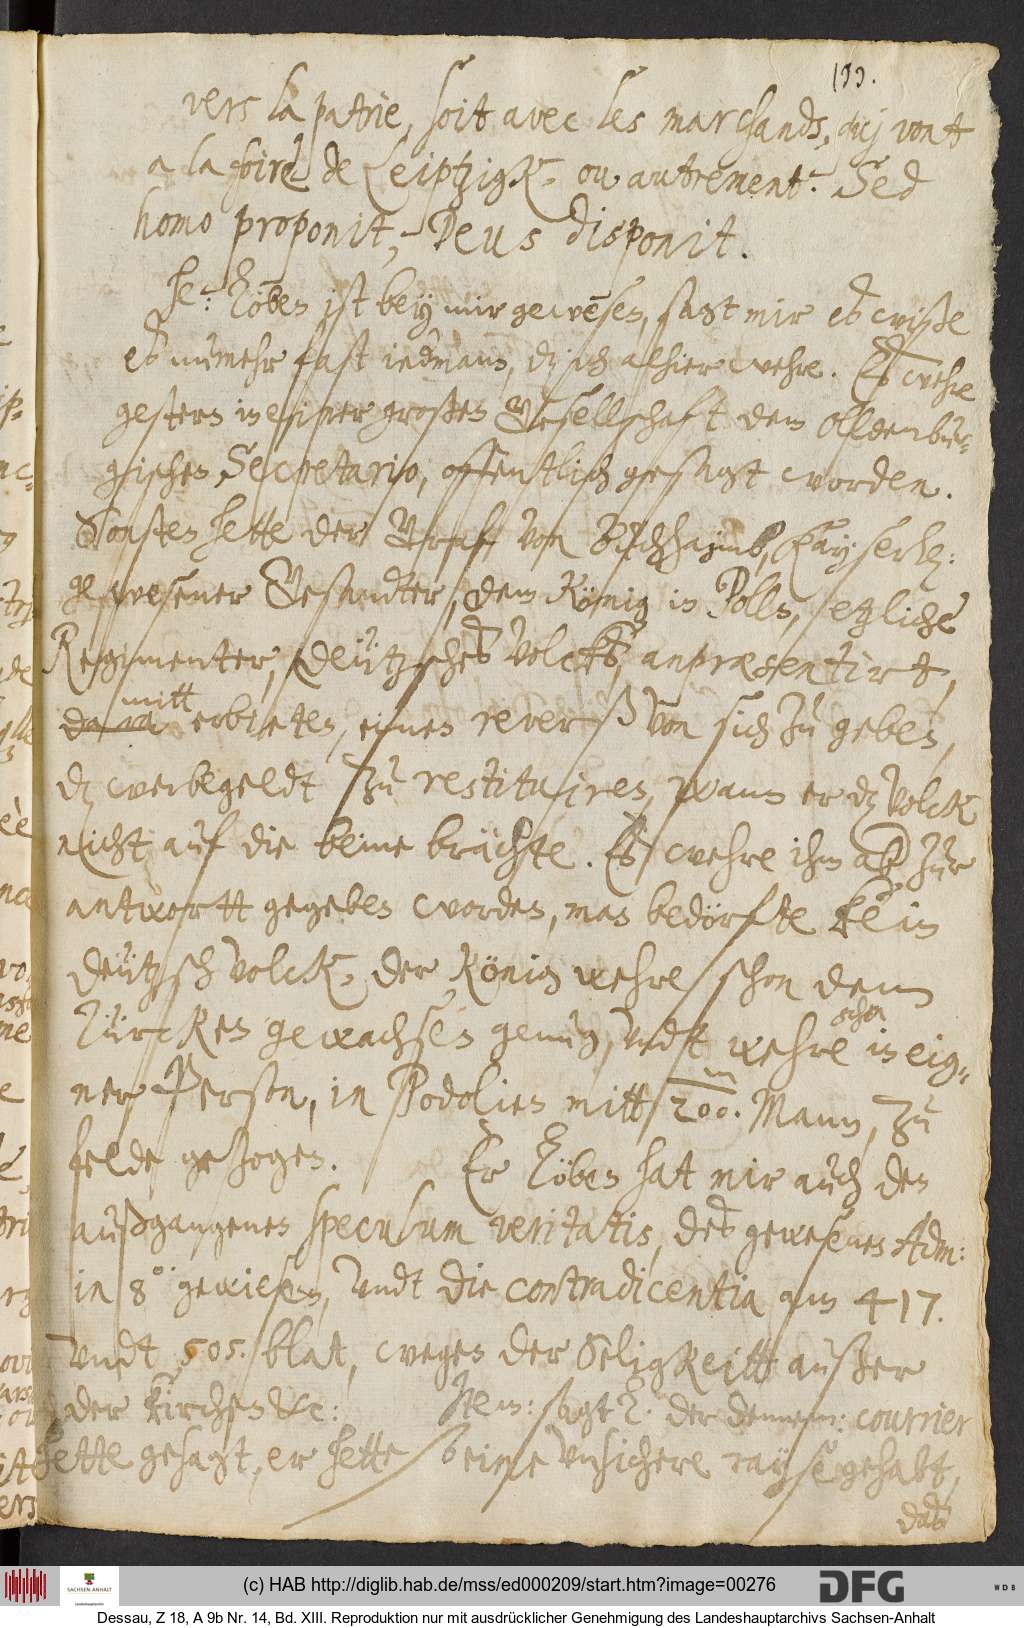 133.
vers la patrie, soit avec les marchands, quj vont
a la foire de Leiptzigk, ou autrement. Sed
homo proponit, Deus disponit.
He: Löben ist bey mir gewesen, sagt mir es wiße
es nunmehr fast iedman, dz ich alhier wehre. Es wehre
gestern in einer großen Gesellschaft dem Olldenbur-
gischen Secretario, offentlich gesagt worden.
Sonsten hette der Graff von Buchhaymb, Kayserl:
gewesener Gesandter, dem König in Polln, etzliche
Regimenter, deützsches volcks, anpræsentirt,
mitt
erbieten, einen reverß von sich zu geben,
dz werbegeldt zu restituiren, wann er dz volck
nicht auf die beine brächte. Es wehre ihm ab zur
antwortt gegeben worden, man bedörfte kein
deützsch volck, der König wehre schon dem
Türcken gewachsen genug, undt wehre schon in eig-
ner Person, in Podolien mitt 200. m Mann, zu
felde gezogen. Er Löben hat mir auch den
außgangenen speculum veritatis, des gewesenen Adm:
in 8° gewiesen, undt die contradicentia am 417.
undt 505. blat, wegen der Seligkeitt außer
der kirchen etc: Item: sagt L. der dennem: courrier
hette gesagt, er hette eine unsichere rayse gehabt,
das
(c) HAB http://diglib.hab.de/mss/ed000209/start.htm?image=00276
SACHSEN-ANHALT
Landeshauptarchiv
DFG
WDB
Dessau, Z 18, A 9b Nr. 14, Bd. XIII. Reproduktion nur mit ausdrücklicher Genehmigung des Landeshauptarchivs Sachsen-Anhalt